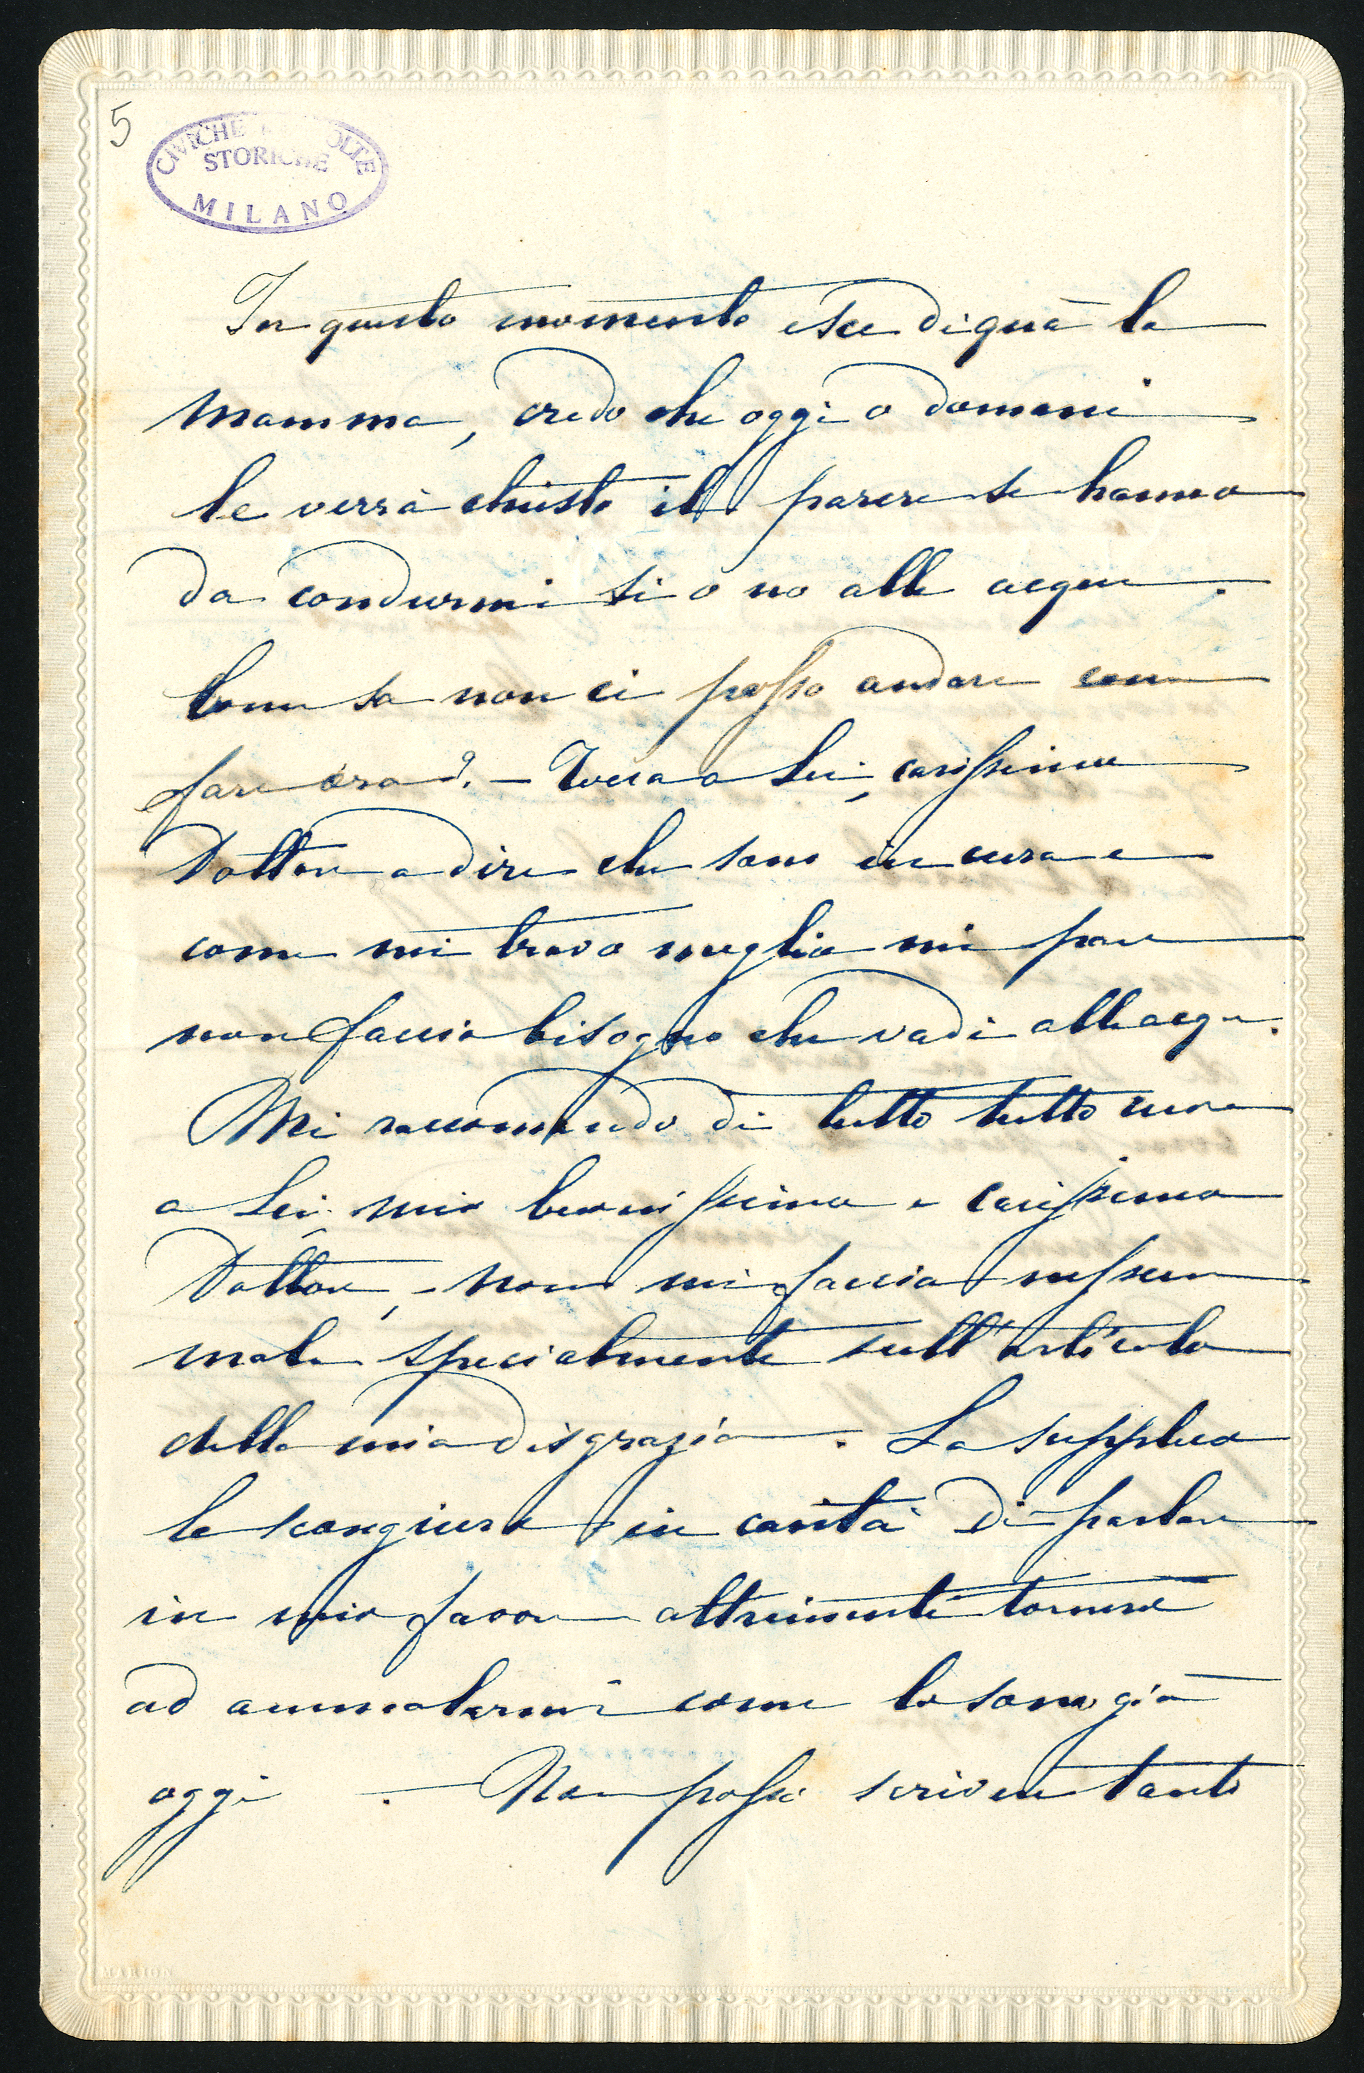 5
CIVICHE RACCOLTE
STORICHE
MILANO
In questo momento esce di quà la
mamma, credo che oggi o domani
le verrà chiesto il parere se hanno
da condurmi si o no alle acque.
Come sa non ci posso andare come
fare ora? - Tocca a Lei, carissimo
Dottore a dire che sono in cura e
come mi trovo meglio mi pare
non faccia bisogno che vadi alle acque.
Mi raccomando di tutto tutto cuore
a Lei mio buonissimo e carissimo
Dottore, - non mi faccia nessun
male specialmente sull'articolo
della mia disgrazia. La supplico
la scongiuro in carità di parlare
in mio favore altrimenti tornerò
ad ammalarmi come lo sono già
oggi. - Non posso scrivere tanto
MARION